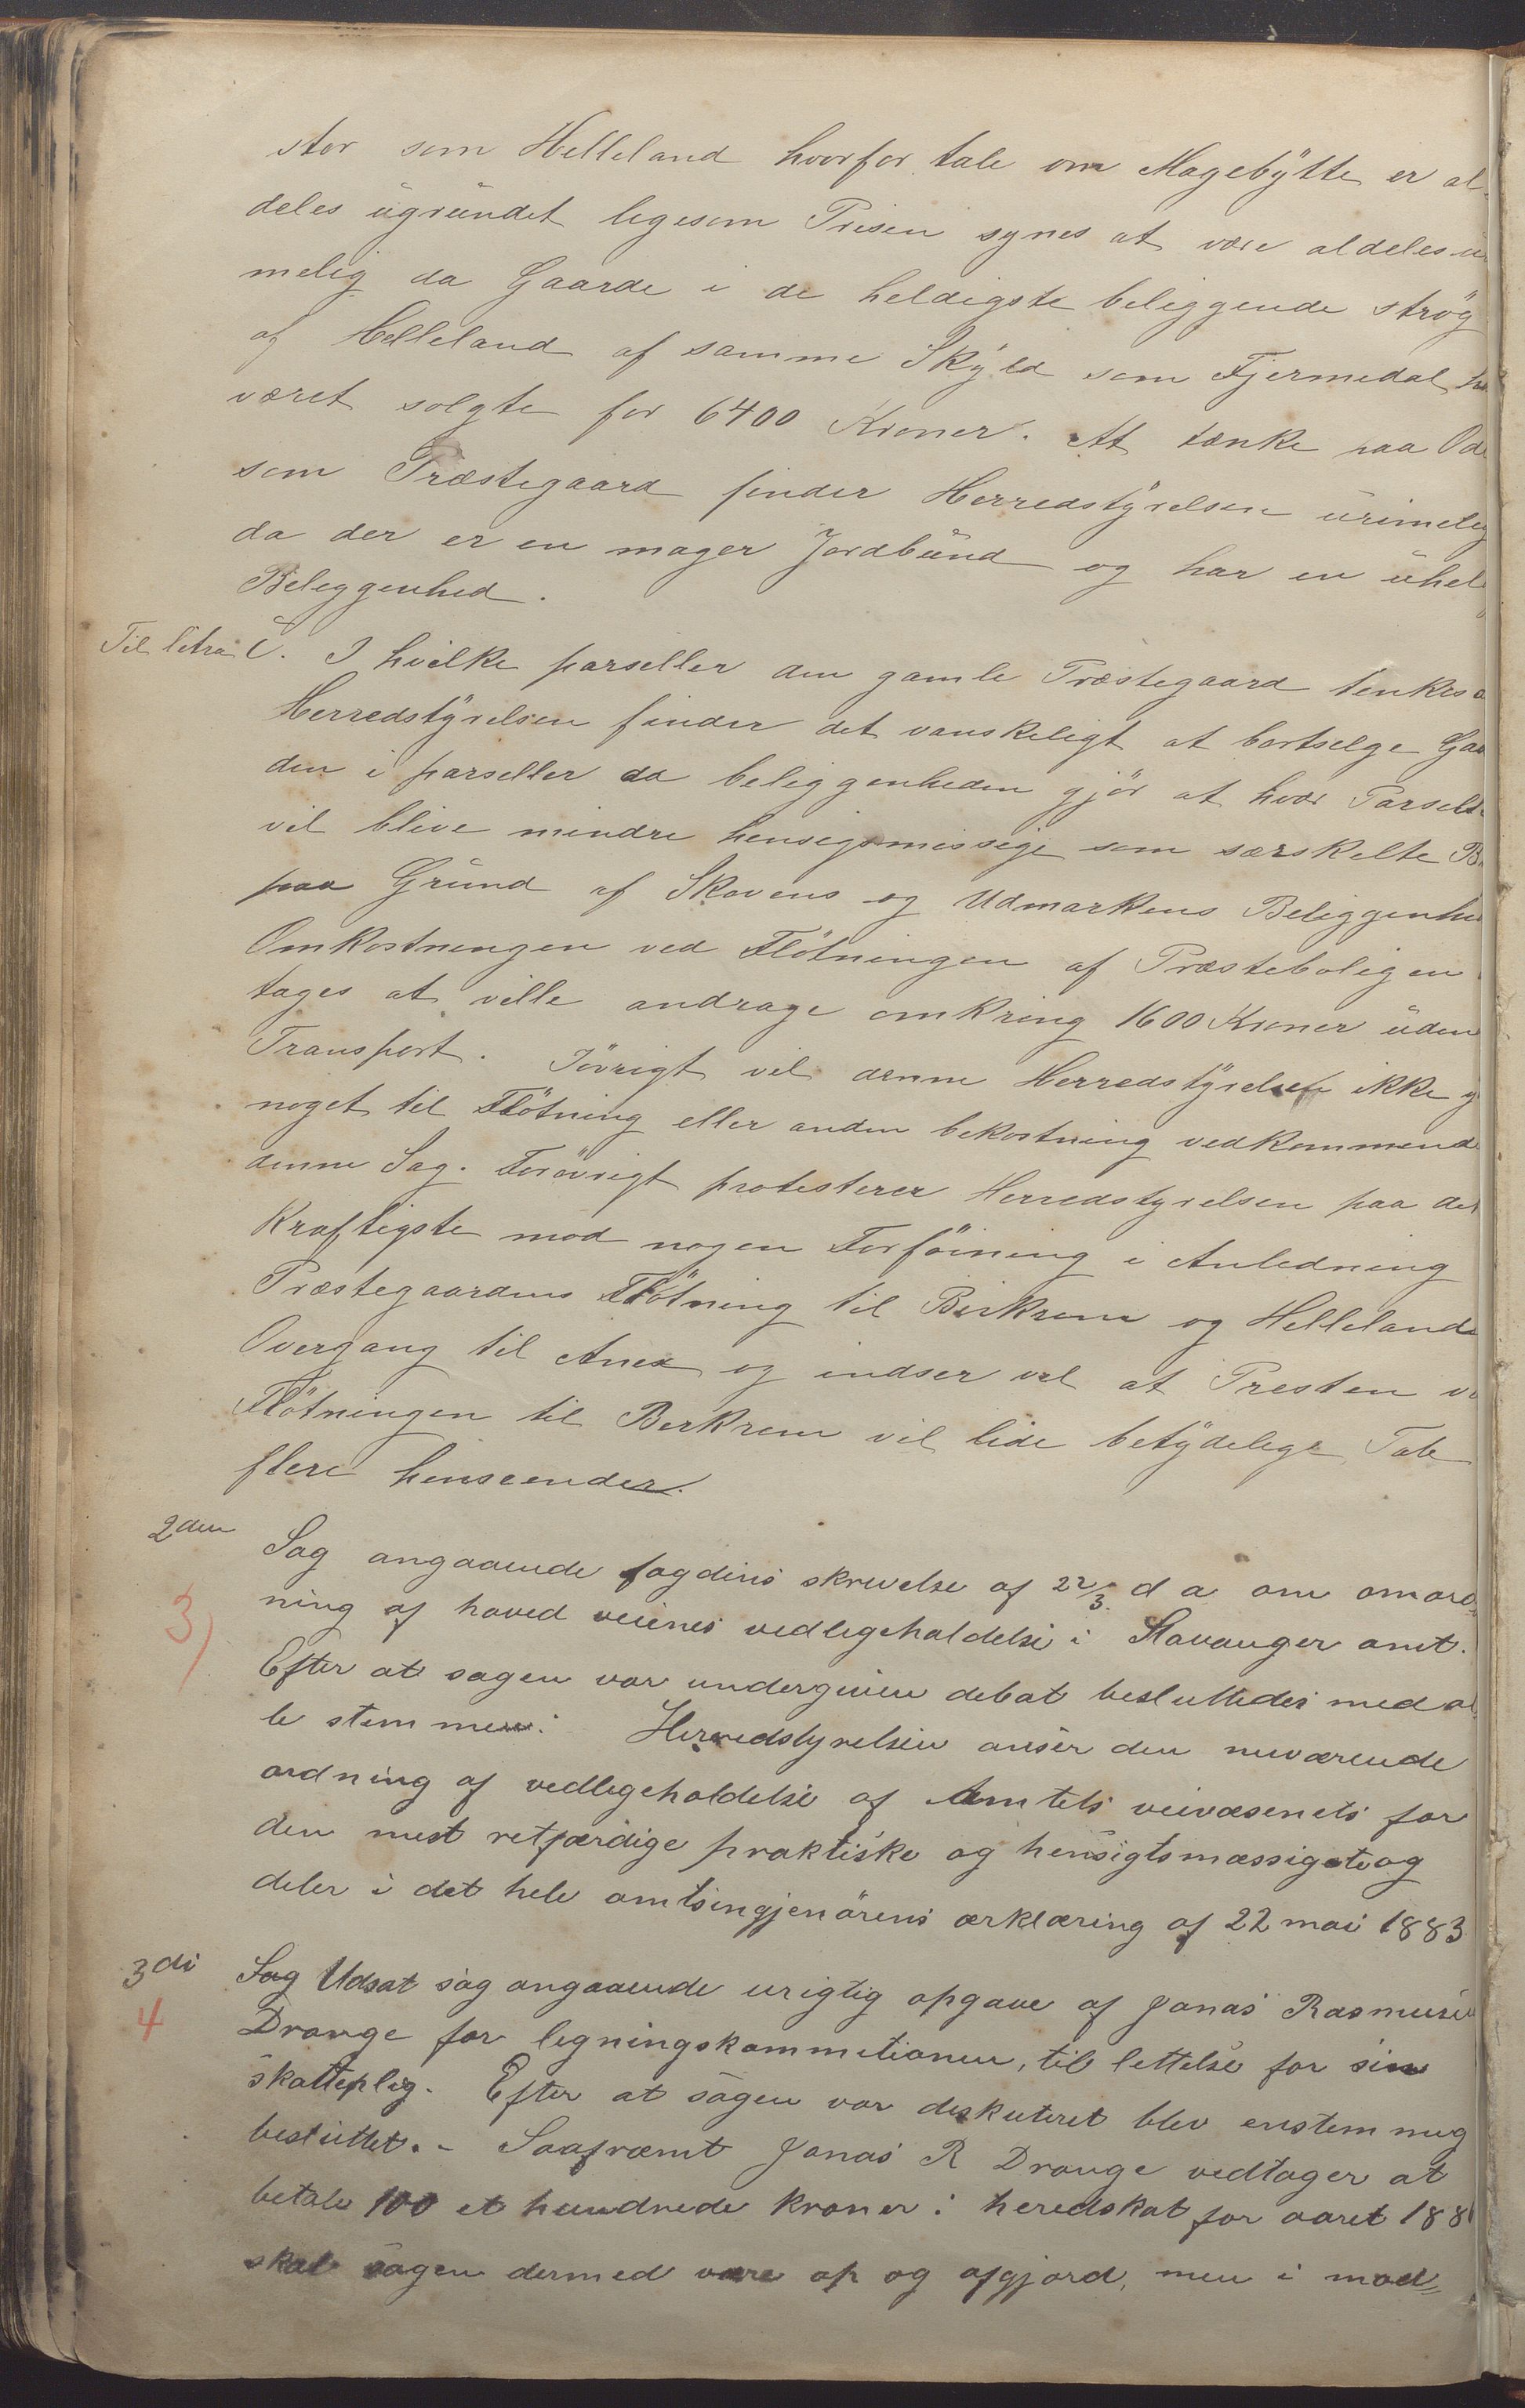 stor som Helleland hvorfor tale om Magebytte er al-
deles ugrundet ligesom Prisen synes at være aldeles u
melig da Gaarde i de heldigste beliggende strøg
af Helleland af samme Skyld som Fjermedal ha
været solgte for 6400 Kroner. At tænke paa Od
som Præstegaard finder Herredstyrelsen urimelig
da der er en mager Jordbund og har en uhel
Beleggenhed.
Til litra C. I hvilke parseller den gamle Præstegaard tenkes
Herredstyrelsen finder det vanskeligt at bortselge Gaa
den i parseller da beliggenheden gjör at hver Parsell
vil blive mindre hensigsmessige som særskelte B
paa Grund af Skovens og Udmarkens Beliggenhe
Omkostningen ved Flötningen af Præsteboligen
tages at ville andrage omkring 1600 Kroner uden
Transport. Iövrigt vil denne Herredstyrelsen ikke
noget til Flötning eller anden bekostning vedkommend
denne Sag. Forövrigt protesterer Herredstyrelsen paa det
Kraftigste mod nogen Forföining i Anledning
Præstegaardens Flötning til Birkrem og Hellelands
Overgang til Anex og indser vel at Presten v
Flötningen til Berkrem vil lide betydelige Tab
flere henseender.
2den Sag angaaende fogdens skrivelse af 22/3 d a om omord-
3) ning af hoved veienes vedligeholdelse i Stavanger amt.
Efter at sagen var undergiven debat besluttedes med al
le stemmer: Herredstyrelsen anser den nuværende
ordning af vedligeholdelse af Amtets veivæsenets for
den mest retfærdige praktiske og hensigtsmæssigste og
deler i det hele amtsingjenörens ærklæring af 22 mai 1883
3di Sag Udsat sag angaaende urigtig opgave af Jonas Rasmusen
4 Drange for legningskommitionen, til lettelse for sin
skatteplig. Efter at sagen var deskuteret blev enstemmig
besluttet. - Saafræmt Jonas R Drange vedtager at
betale 100 et hundrede kroner i heredskat for aaret 188
skal sagen dermed være op og afgjord, men i mod-